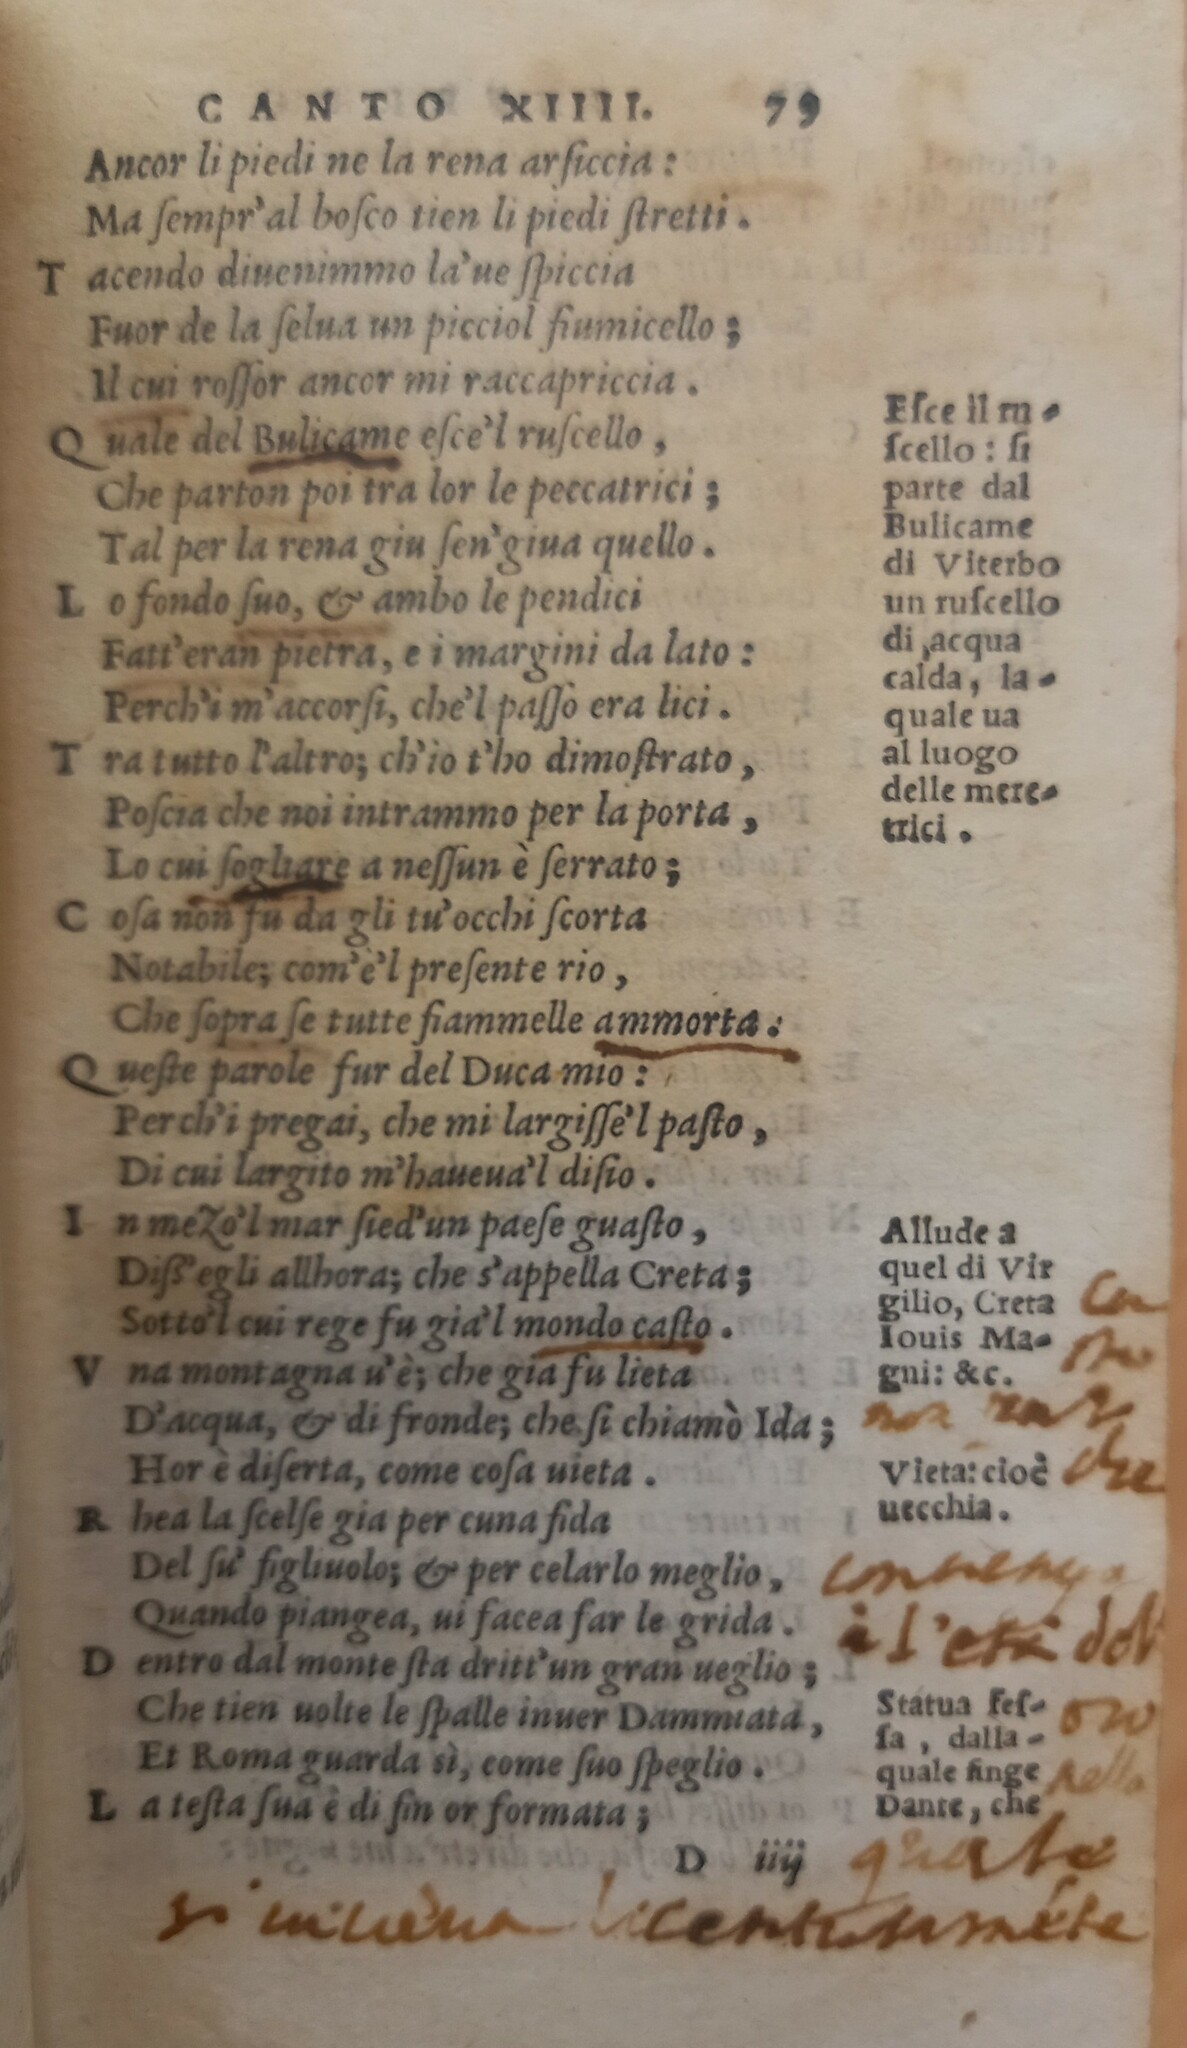 CANTO XIIII. 79
Ancor li piedi ne la rena arſiccia:
Ma ſempr'al boſco tien li piedi ſtretti.
Tacendo diuenimmo la'ue ſpiccia
Fuor de la ſelua un picciol fiumicello;
Il cui roſſor ancor mi raccapriccia.
Quale del Bulicame eſce'l ruſcello,
Che parton poi tra lor le peccatrici;
Tal per la rena giu ſen'giua quello.
Lo fondo ſuo, & ambo le pendici
Fatt'eran pietra, e i margini da lato:
Perch'i m'accorſi, che'l paſſo era lici.
Tra tutto l'altro; ch'io t'ho dimoſtrato,
Poſcia che noi intrammo per la porta,
Lo cui ſogliare a neſſun è ſerrato;
Coſa non fu da gli tu'occhi ſcorta
Notabile; com'è'l preſente rio,
Che ſopra ſe tutte fiammelle ammorta:
Queſte parole fur del Duca mio:
Perch'i pregai, che mi largiſſe'l paſto,
Di cui largito m'haueua'l diſio.
In mezo'l mar ſied'un paeſe guaſto,
Diſſ'egli allhora; che s'appella Creta;
Sotto'l cui rege fu gia'l mondo caſto.
Vna montagna u'è; che gia fu lieta
D'acqua, & di fronde; che ſi chiamò Ida;
Hor è diſerta, come coſa uieta.
Rhea la ſcelſe gia per cuna fida
Del ſu' figliuolo; & per celarlo meglio,
Quando piangea, ui facea far le grida.
Dentro dal monte ſta dritt'un gran ueglio;
Che tien uolte le ſpalle inuer Dammiata,
Et Roma guarda sì, come ſuo ſpeglio.
La teſta ſua è di fin or formata;
D iiij
Eſce il ru-
ſcello: ſi
parte dal
Bulicame
di Viterbo
un ruſcello
di acqua
calda, la-
quale ua
al luogo
delle mere-
trici.
Allude a
quel di Vir
gilio, Creta
Iouis Ma-
gni: &c.
Vieta: cioè
uecchia.
Statua feſ-
ſa, dalla-
quale finge
Dante, che
non
che
à l'età del
oro
nella
quale
si